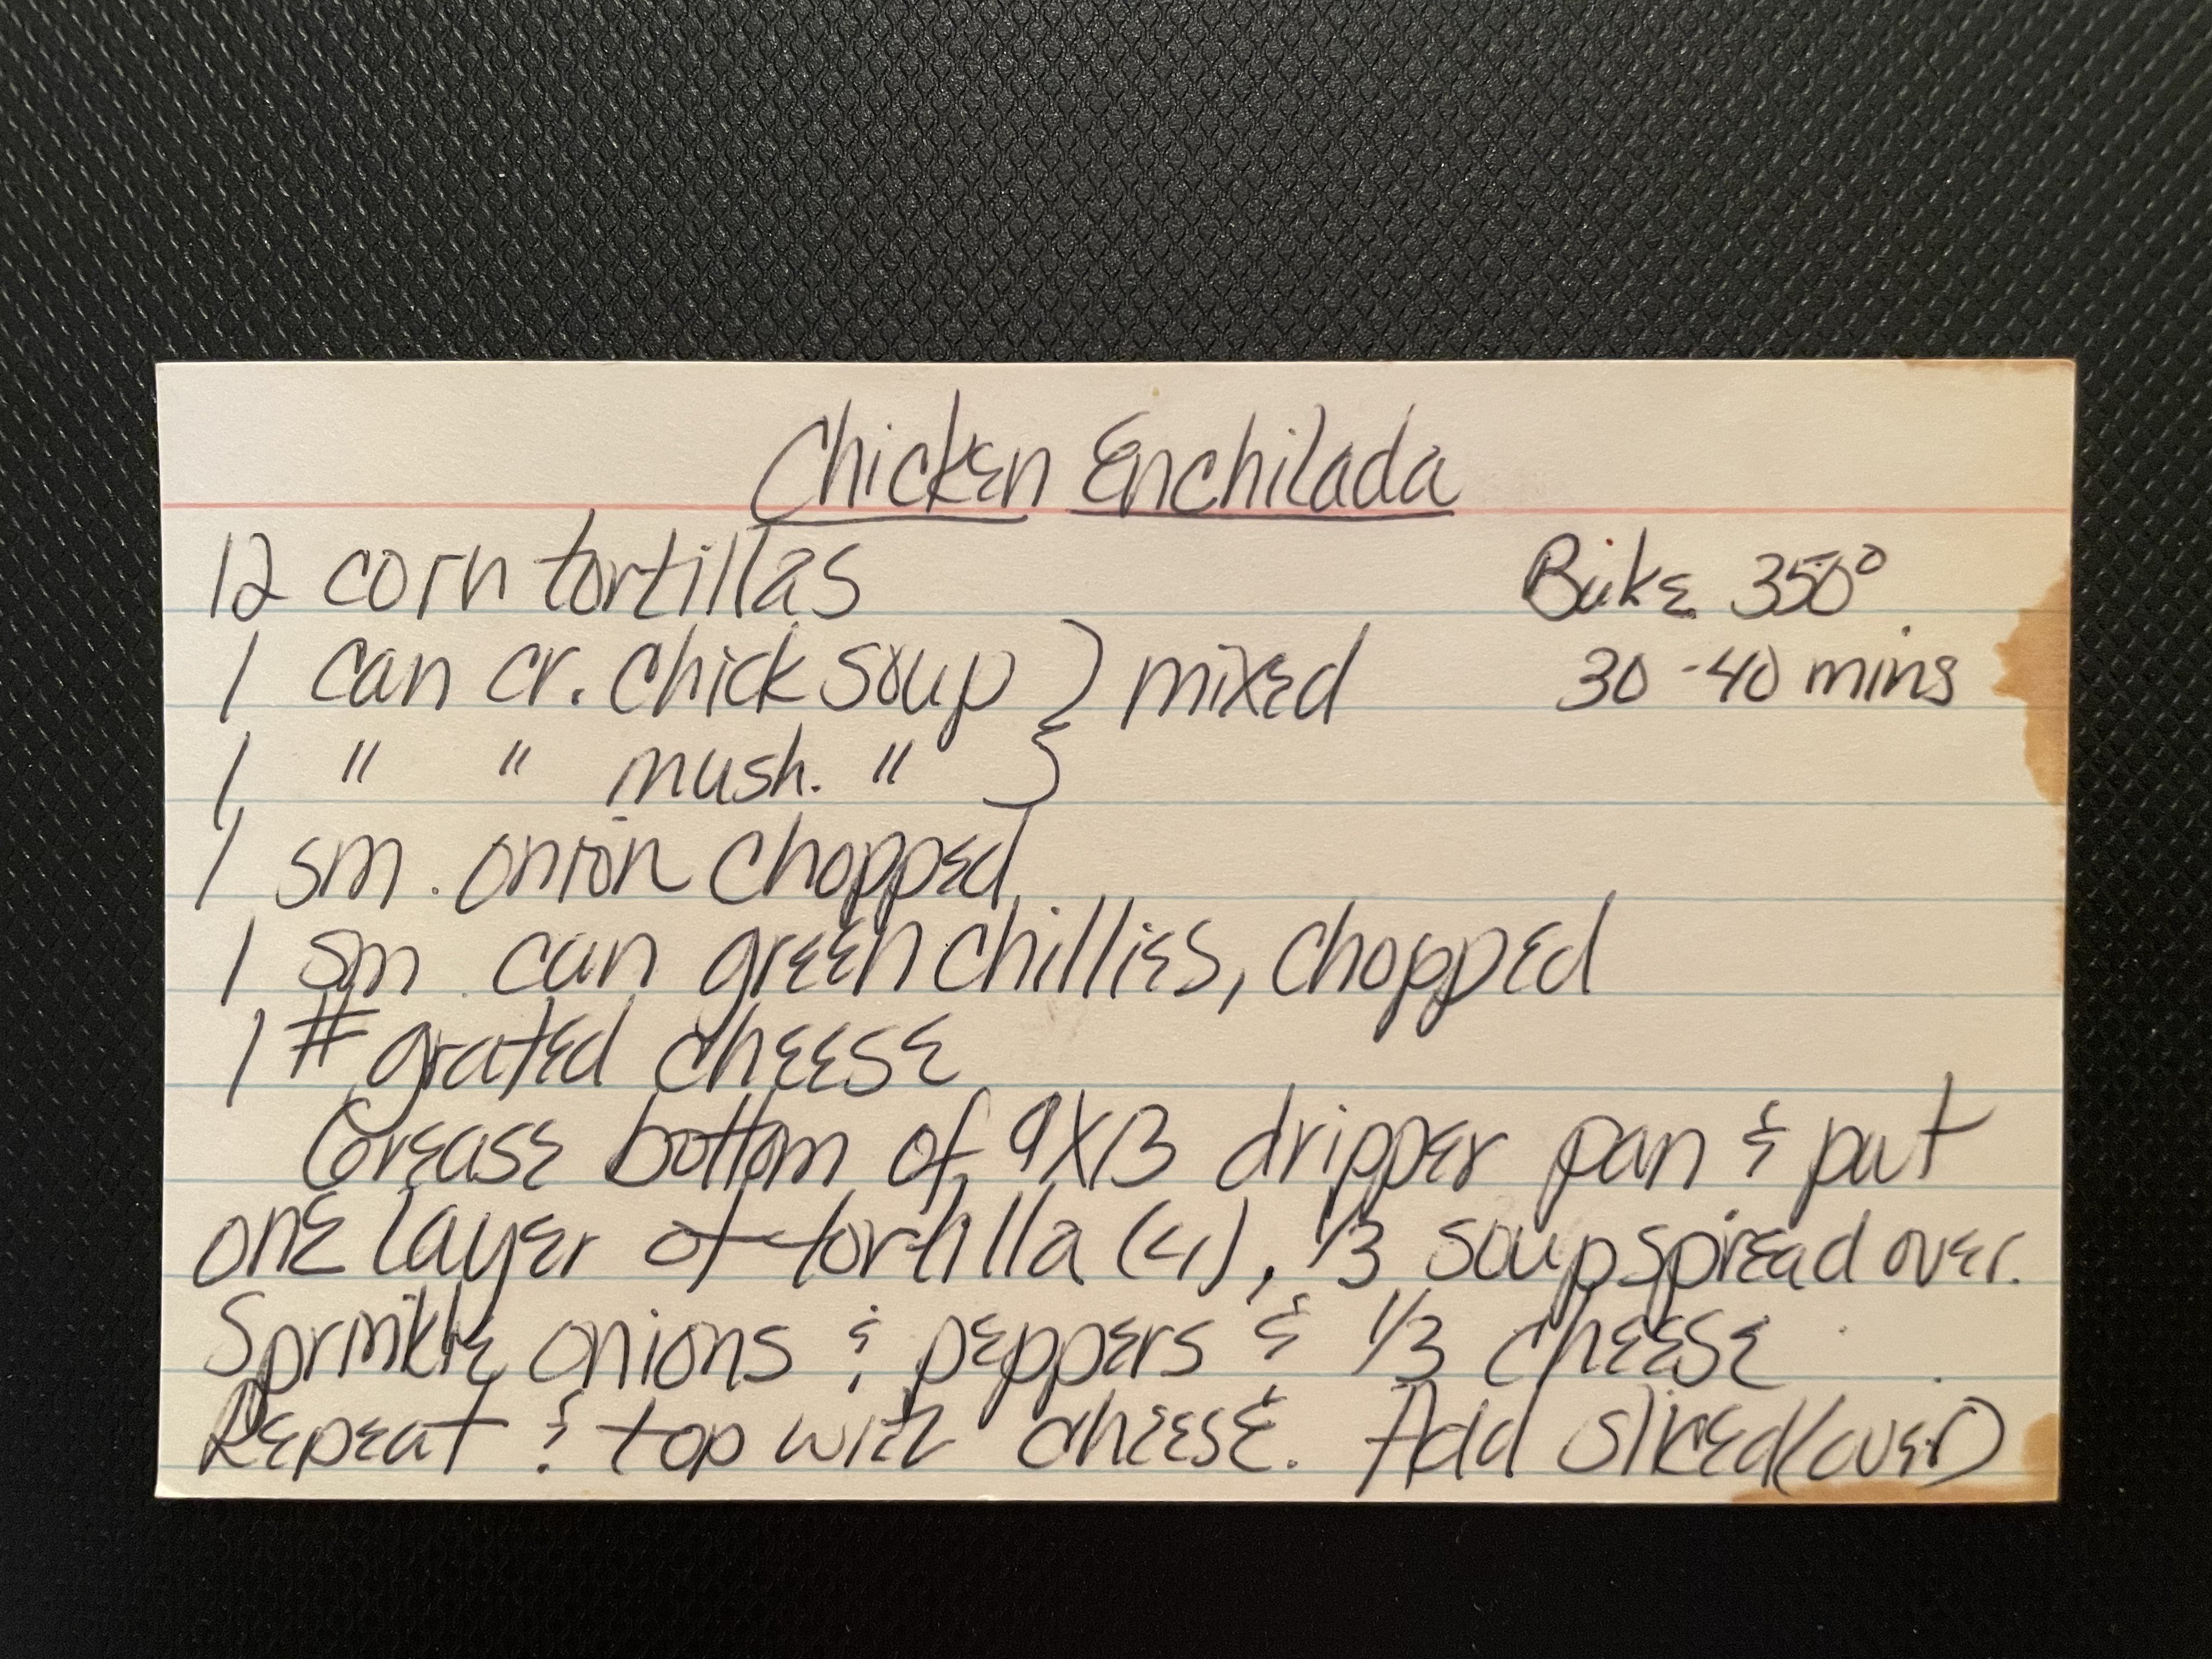 Chicken Enchilada
12 corn tortillas
Bake 350°
1 can cr. chick soup } mixed
30-40 mins
1 " " mush. " }
1 sm. onion chopped
1 sm. can green chillies, chopped
1 # grated cheese
Grease bottom of 9X13 dripper pan & put
one layer of tortilla (4), 1/3 soup spread over.
Sprinkle onions & peppers & 1/3 cheese
Repeat & top with cheese. Add sliced (over)